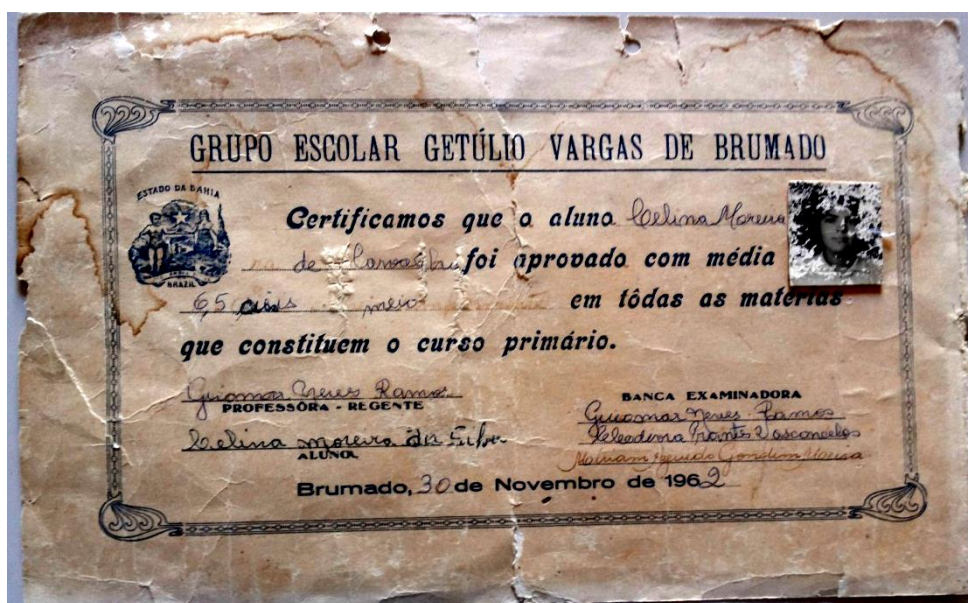 GRUPO ESCOLAR GETÚLIO VARGAS DE BRUMADO
ESTADO DA BAHIA
BRAZIL
Certificamos que o aluno Celina Moreira
de foi aprovado com média
6,5 meio em tôdas as materias
que constituem o curso primário.
Guiomar Neves Ramos
PROFESSÔRA - REGENTE
Celina moreira da
ALUNO
BANCA EXAMINADORA
Guiomar Neves Ramos
Prantes Vasconcelos
Azevedo Gondim
Brumado, 30 de Novembro de 1962